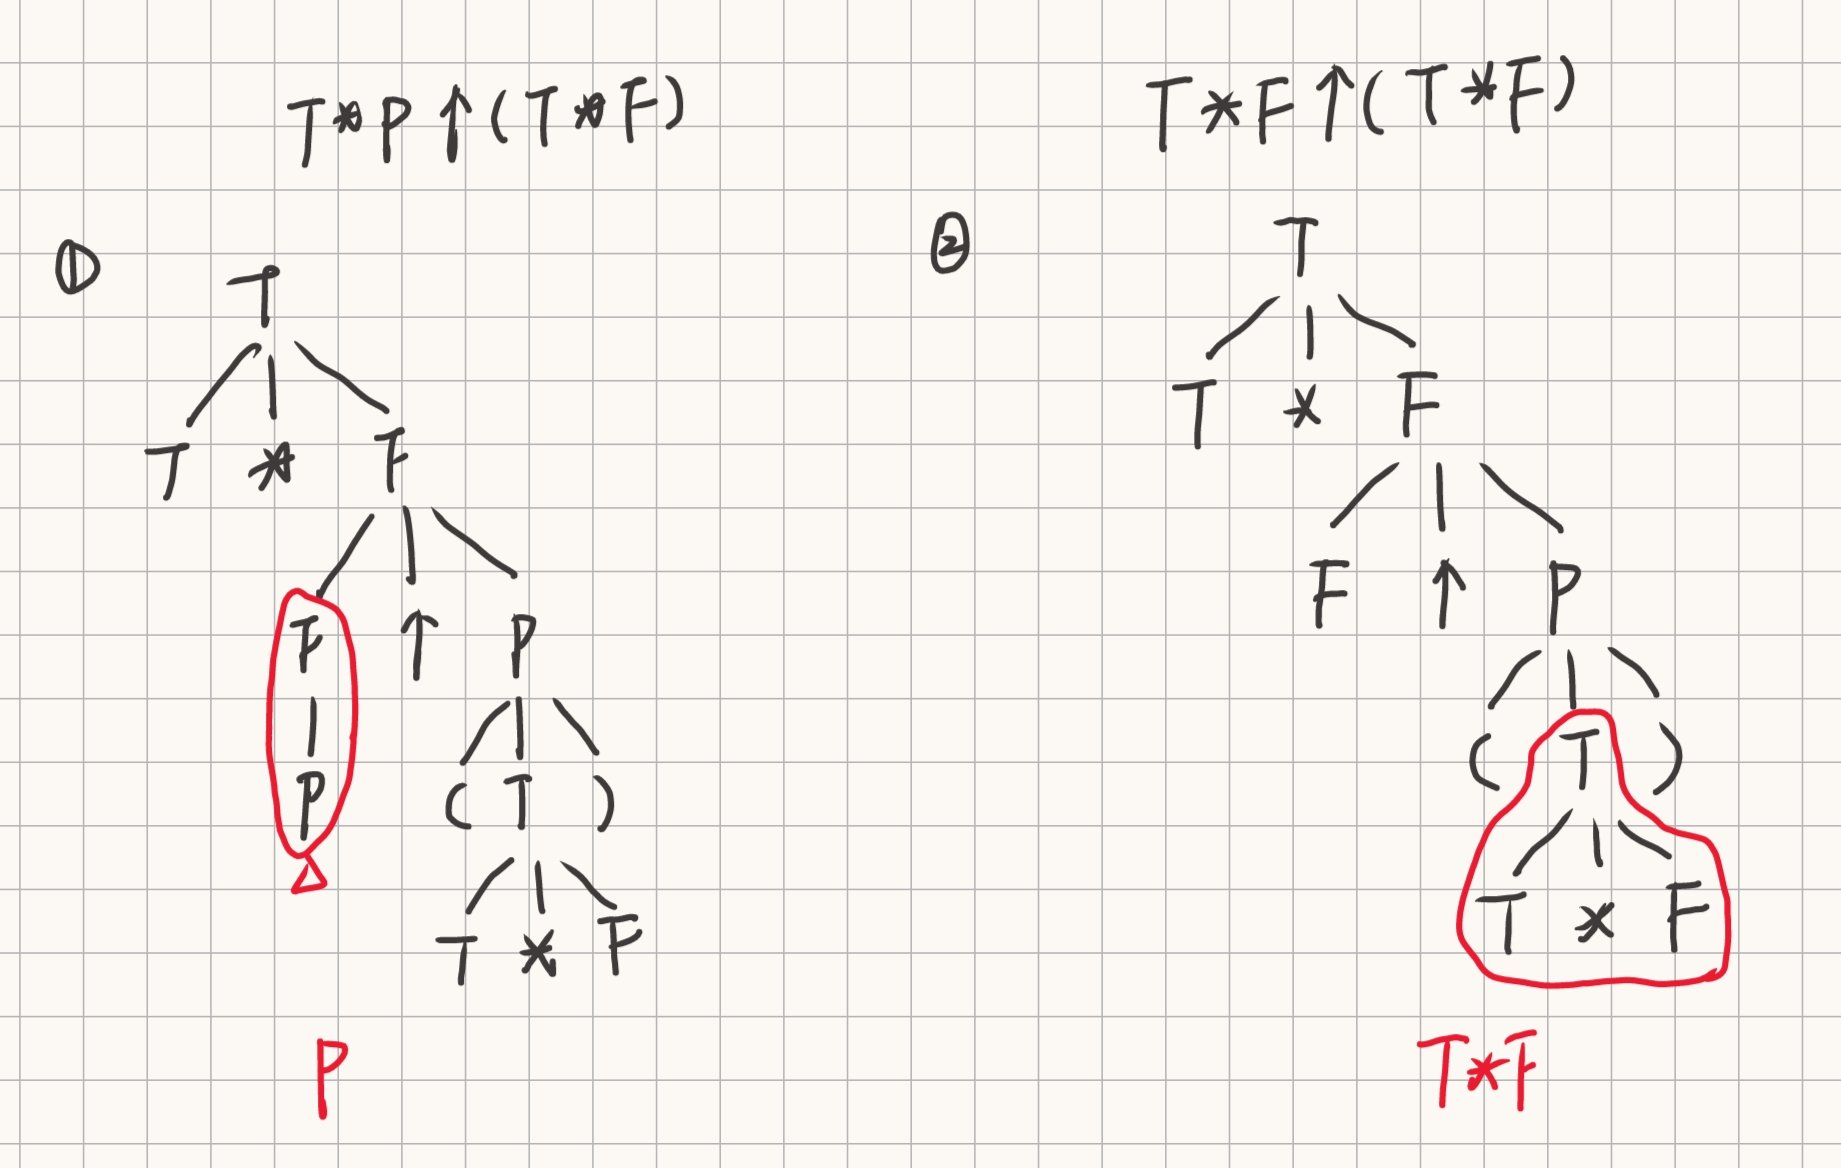 T*P↑(T*F)
①
T
T * F
F ↑ P
P
( T )
T * F
P
T*F↑(T*F)
②
T
T * F
F ↑ P
( T )
T * F
T*F